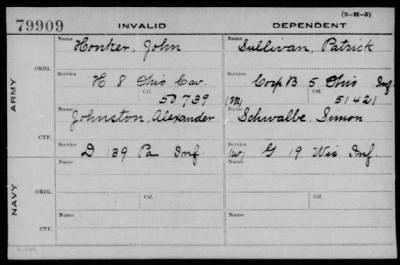 (3-H-5)
79909 INVALID DEPENDENT
Name Honker, John Name Sullivan, Patrick
ORIG.
Service Service
H 8 Ohio Cav. Corp B 5 Ohio Inf.
Ctf. 50739 (M) Ctf. 51421
ARMY
Name Johnston, Alexander Name Schwalbe, Simon
CTF.
Service Service
D 139 Pa Inf. (W) G 19 Wis Inf.
Ctf. Ctf.
NAVY
ORIG.
Name Name
Service Service
Ctf. Ctf.
CTF.
Name Name